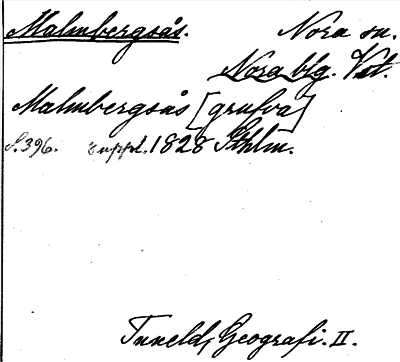 Malmbergsås. Nora sn.
Nora blg. Vstm.
Malmbergsås [grufva]
s. 396. uppl. 1828 Sthlm.
Tuneld, Geografi. II.